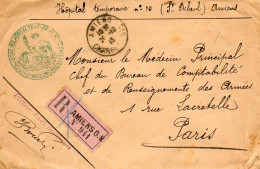 Hôpital temporaire n° 10 (St Acheul) Amiens
AMIENS
Monsieur le Médecin Principal
Chef du Bureau de Comptabilité
et de Renseignements des Armées
1 rue Lacretelle
Paris
R AMIENS G.
911